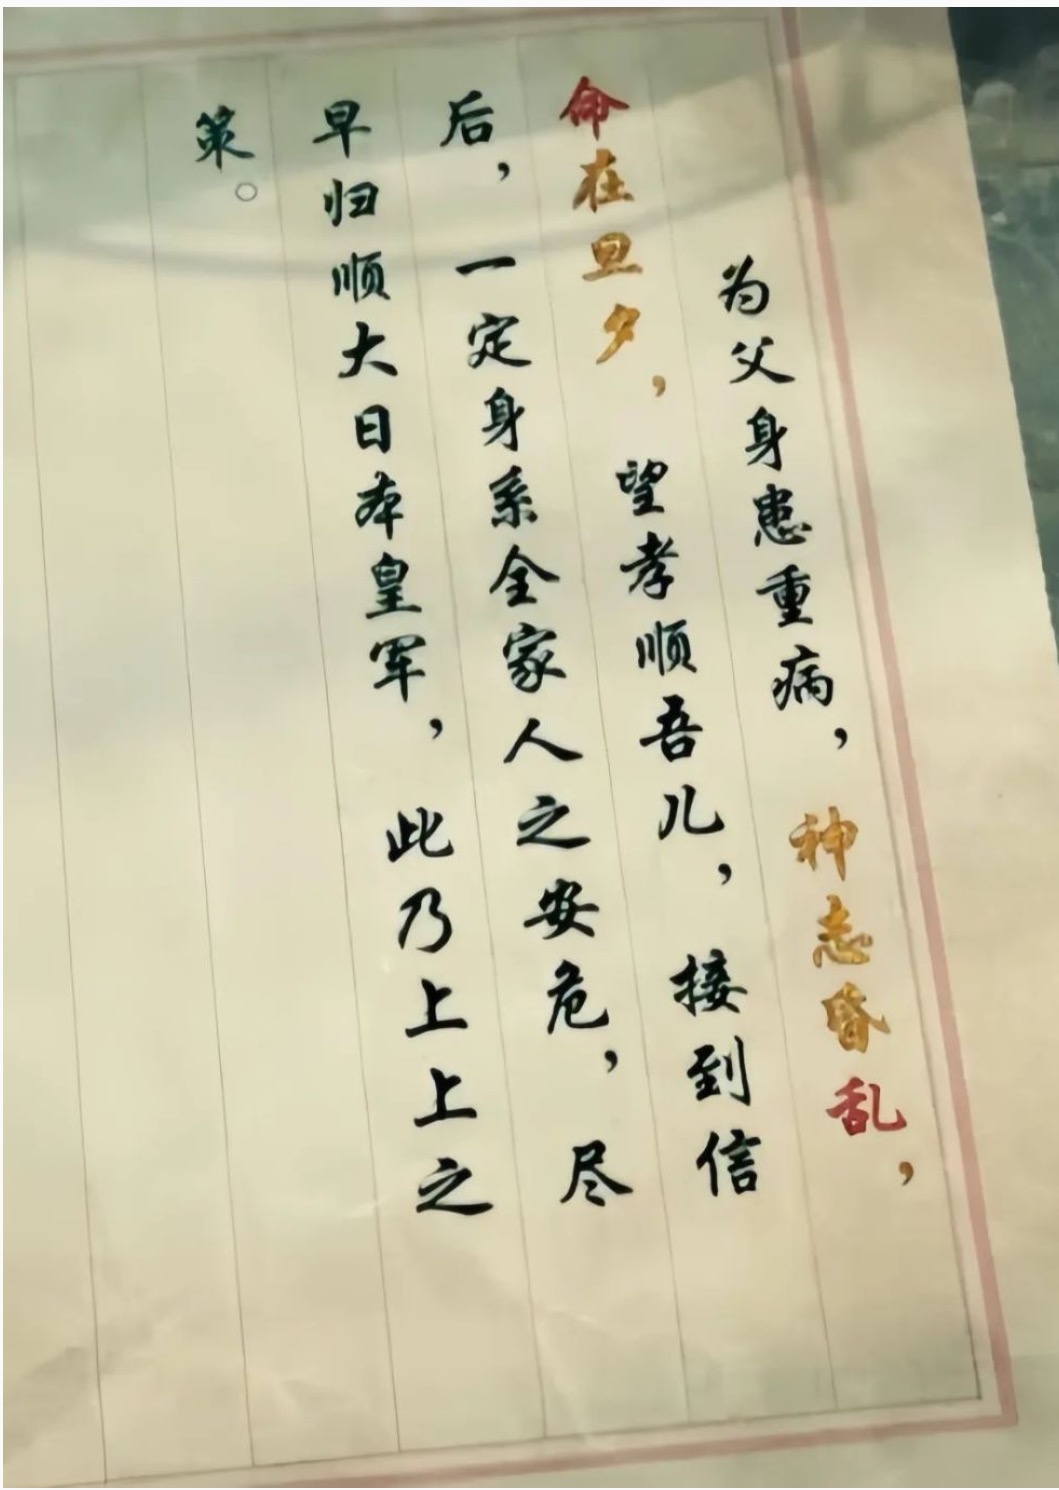 为父身患重病，神志昏乱，
命在旦夕，望孝顺吾儿，接到信
后，一定身系全家人之安危，尽
早归顺大日本皇军，此乃上上之
策。